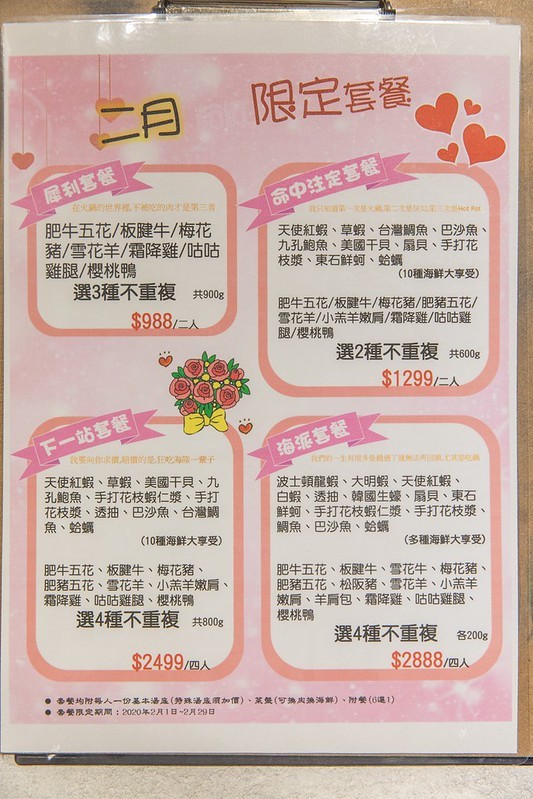 二月 限定套餐
犀利套餐
在火鍋的世界裡,不被吃的肉才是第三者
肥牛五花/板腱牛/梅花
豬/雪花羊/霜降雞/咕咕
雞腿/櫻桃鴨
選3種不重複 共900g
$988/二人
命中注定套餐
天使紅蝦、草蝦、台灣鯛魚、巴沙魚、
九孔鮑魚、美國干貝、扇貝、手打花
枝漿、東石鮮蚵、蛤蠣
(10種海鮮大享受)
肥牛五花/板腱牛/梅花豬/肥豬五花/
雪花羊/小羔羊嫩肩/霜降雞/咕咕雞
腿/櫻桃鴨
選2種不重複 共600g
$1299/二人
下一站套餐
天使紅蝦、草蝦、美國干貝、九
孔鮑魚、手打花枝蝦仁漿、手打
花枝漿、透抽、巴沙魚、台灣鯛
魚、蛤蠣
(10種海鮮大享受)
肥牛五花、板腱牛、梅花豬、
肥豬五花、雪花羊、小羔羊嫩肩、
霜降雞、咕咕雞腿、櫻桃鴨
選4種不重複 共800g
$2499/四人
海派套餐
波士頓龍蝦、大明蝦、天使紅蝦、
白蝦、透抽、韓國生蠔、扇貝、東石
鮮蚵、手打花枝蝦仁漿、手打花枝漿、
鯛魚、巴沙魚、蛤蠣
(多種海鮮大享受)
肥牛五花、板腱牛、雪花牛、梅花豬、
肥豬五花、松阪豬、雪花羊、小羔羊
嫩肩、羊肩包、霜降雞、咕咕雞腿、
櫻桃鴨
選4種不重複 各200g
$2888/四人
● 套餐均附每人一份基本湯底(特殊湯底須加價)、菜盤(可換肉換海鮮)、附餐(6選1)
● 套餐限定期間:2020年2月1日~2月29日